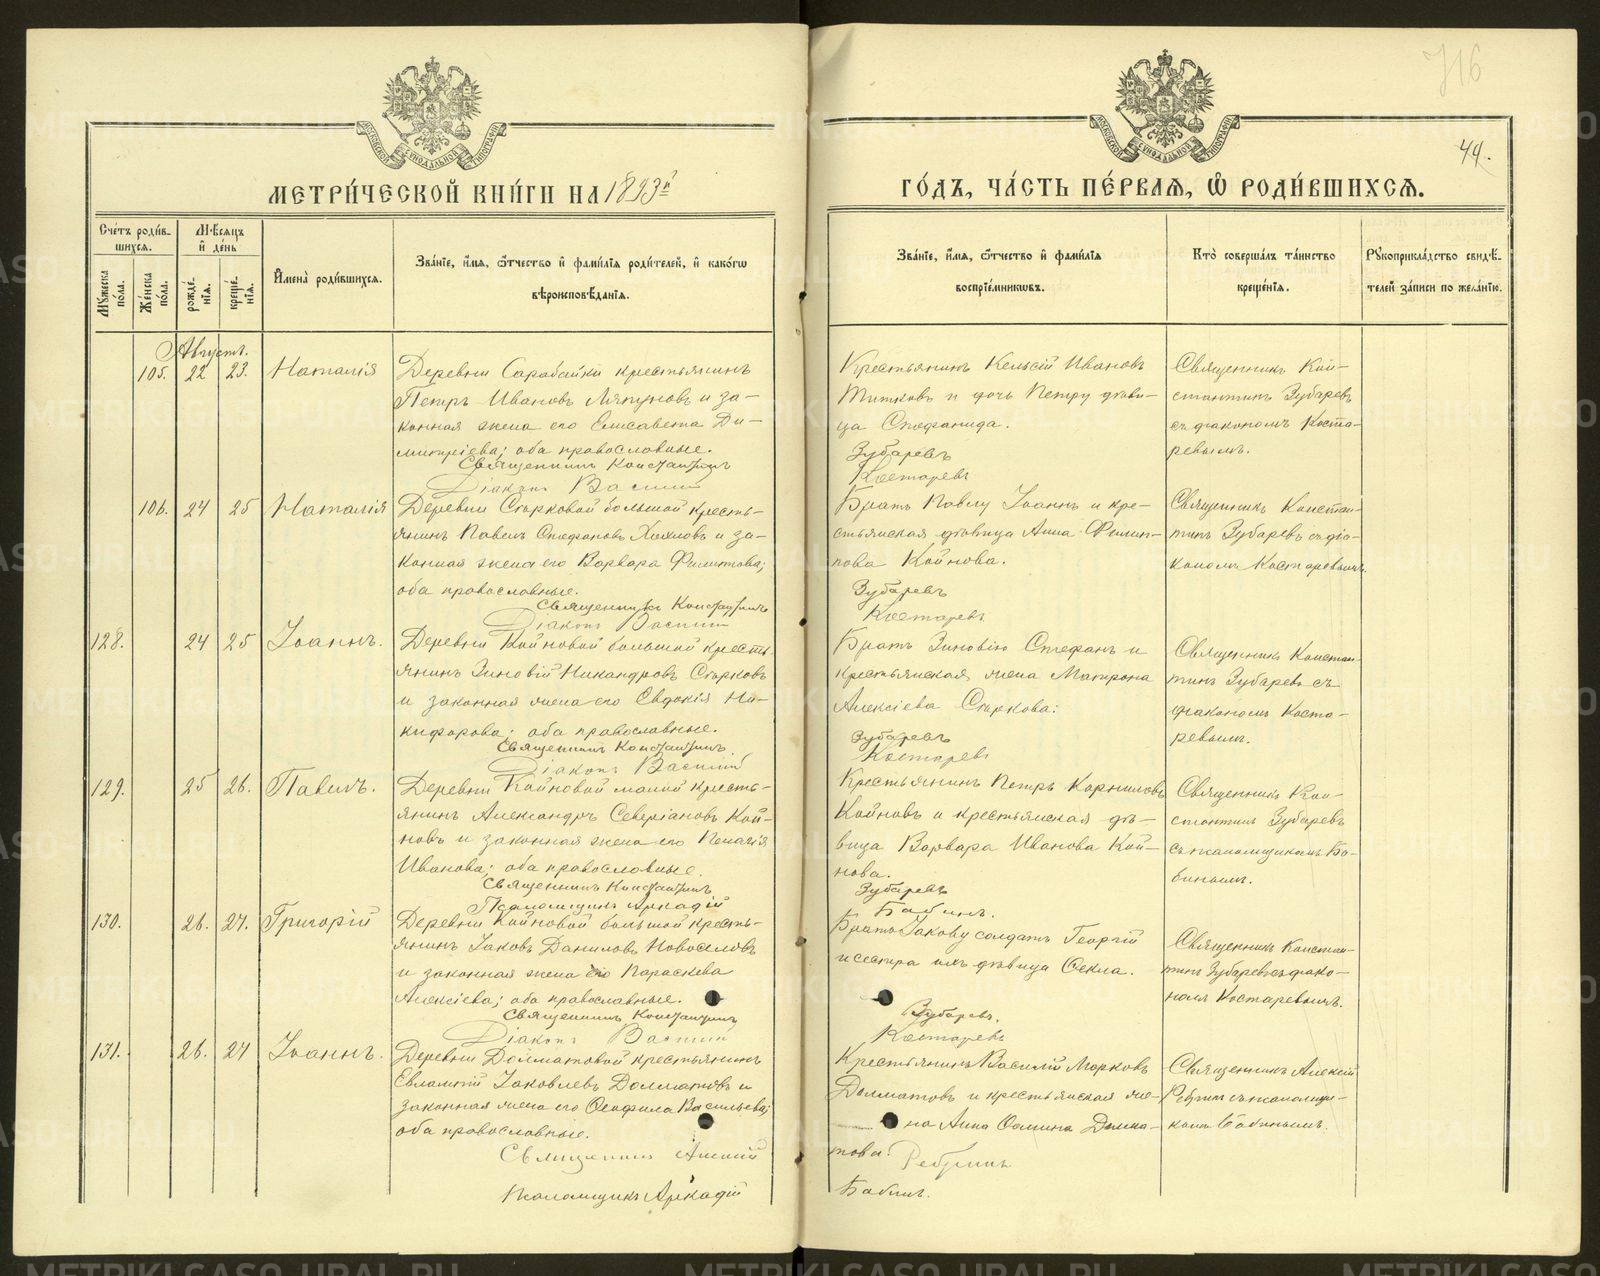 716
44.
МОСКОВСКОЙ СѴНОДАЛЬНОЙ ТИПОГРАФІИ
МОСКОВСКОЙ СѴНОДАЛЬНОЙ ТИПОГРАФІИ
МЕТРИ́ЧЕСКОЙ КНИ́ГИ НА 1893й
ГО́ДЪ, ЧА́СТЬ ПЕ́РВАѦ, Ѡ҆ РОДИ́ВШИХСѦ.
Сче́тъ роди́вшихсѧ.
Мꙋ́жеска по́ла.
Же́нска по́ла.
Мѣ́сѧцъ и҆ де́нь
рожде́нїѧ.
креще́нїѧ.
И҆мена̀ роди́вшихсѧ.
Зва́нїе, и҆́мѧ, ѻ҆́тчество и҆ фами́лїѧ роди́телей, и҆ како́гѡ
вѣроисповѣ́данїѧ.
Зва́нїе, и҆́мѧ, ѻ҆́тчество и҆ фами́лїѧ
воспрїе́мникѡвъ.
Кто̀ соверша́лъ та́инство
креще́нїѧ.
Рꙋкоприкла́дство свидѣ́-
телей за́писи по жела́нїю.
Августъ.
105. 22 23. Наталія
Деревни Сарабайки крестьянинъ
Петръ Ивановъ Ляпуновъ и за-
конная жена его Елисавета Ди-
митріева; оба православные.
Священникъ Константинъ
Діаконъ Василій
Крестьянинъ Кельсій Ивановъ
Титковъ и дочь Петру дѣви-
ца Стефанида.
Зубаревъ
Костаревъ
Священникъ Кон-
стантинъ Зубаревъ
съ діакономъ Коста-
ревымъ.
106. 24 25 Наталія
Деревни Старковой большой кресть-
янинъ Павелъ Стефановъ и за-
конная жена его Варвара Филиппова;
оба православные.
Священникъ Константинъ
Діаконъ Василій
Братъ Павлу Іоаннъ и кре-
стьянская дѣвица Анна Филип-
пова Койнова.
Зубаревъ
Костаревъ
Священникъ Констан-
тинъ Зубаревъ съ діа-
кономъ Костаревымъ.
128. 24 25 Іоаннъ.
Деревни Койновой большой кресть-
янинъ Зиновій Никандровъ Старковъ
и законная жена его Евдокія Ни-
кифорова; оба православные.
Священникъ Константинъ.
Діаконъ Василій
Братъ Зиновію Стефанъ и
крестьянская жена Матрона
Алексіева Старкова.
Зубаревъ
Костаревъ
Священникъ Констан-
тинъ Зубаревъ съ
діакономъ Коста-
ревымъ.
129. 25 26. Павелъ.
Деревни Койновой малой кресть-
янинъ Александръ Северіановъ Кой-
новъ и законная жена его Пелагія
Иванова; оба православные.
Священникъ Константинъ
Псаломщикъ Аркадій
Крестьянинъ Петръ Корниловъ
Койновъ и крестьянская дѣ-
вица Варвара Иванова Кой-
нова.
Зубаревъ
Бабинъ.
Священникъ Кон-
стантинъ Зубаревъ
съ псаломщикомъ Ба-
бинымъ.
130. 26. 27. Григорій
Деревни Койновой большой кресть-
янинъ Іаковъ Даниловъ Новоселовъ
и законная жена его Параскева
Алексіева; оба православные.
Священникъ Константинъ
Діаконъ Василій
Братъ Іакову солдатъ Георгій
и сестра ихъ дѣвица Ѳекла.
Зубаревъ.
Костаревъ
Священникъ Констан-
тинъ Зубаревъ съ діако-
номъ Костаревымъ.
131. 26. 27 Іоаннъ.
Деревни Долматовой крестьянинъ
Евлампій Іаковлевъ Долматовъ и
законная жена его Ѳеофила Васильева;
оба православные.
Священникъ Алексій
Псаломщикъ Аркадій
Крестьянинъ Василій Марковъ
Долматовъ и крестьянская же-
на Анна Фомина Долма-
това.
Бабинъ.
Священникъ Алексій
съ псаломщи-
комъ Бабинымъ.
METRIKI.CASO-URAL.RU